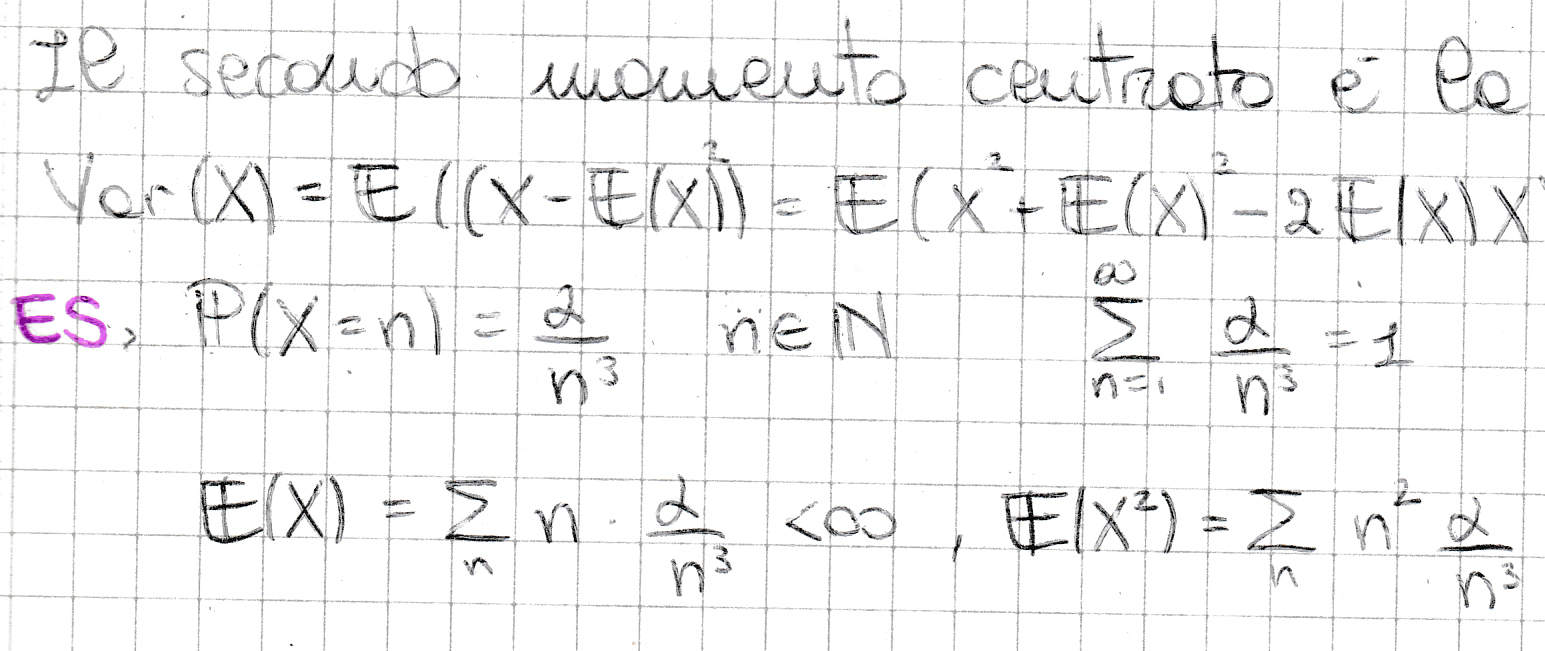 Il secondo momento centrato è la
Var(X) = 𝔼((X-𝔼(X))² = 𝔼(X² + 𝔼(X)² - 2𝔼(X)X
ES. ℙ(X=n) = α/n³ n∈ℕ ∑_{n=1}^{∞} α/n³ = 1
𝔼(X) = ∑_n n · α/n³ <∞ , 𝔼(X²) = ∑_n n² α/n³